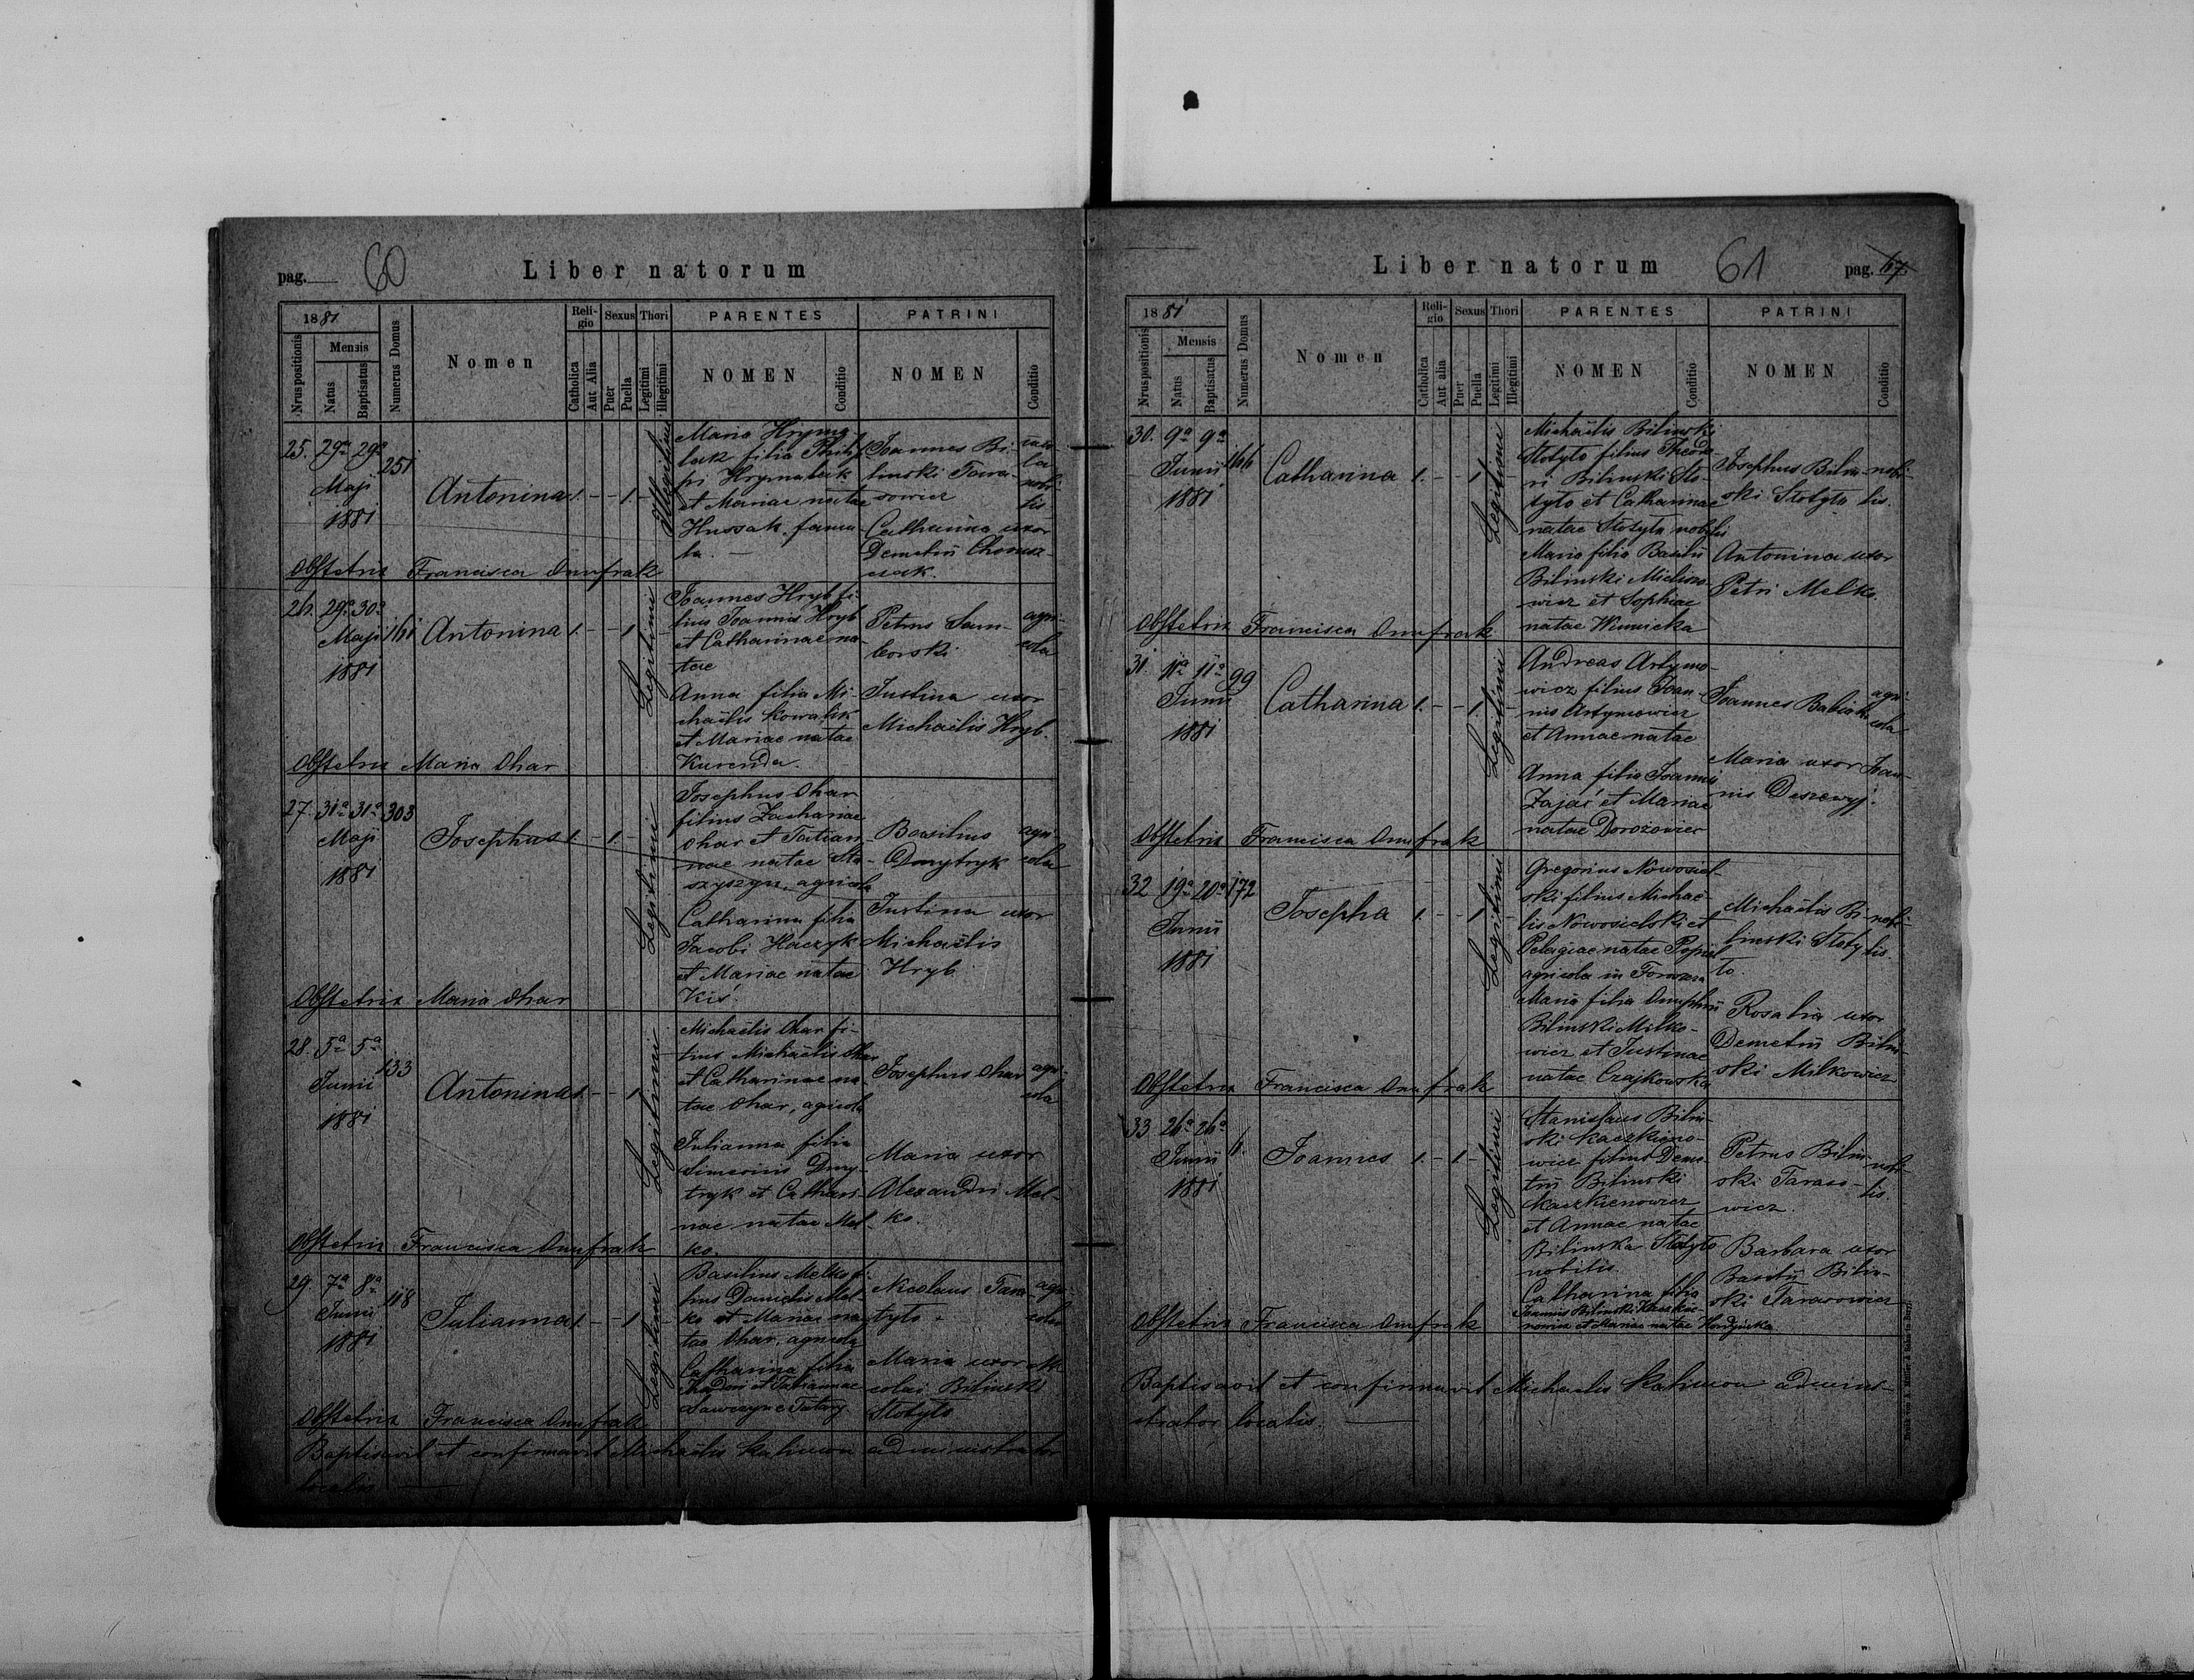 pag. 60
Liber natorum
1881
Religio
Sexus
Thori
PARENTES
PATRINI
Nrus positionis
Mensis
Natus
Baptisatus
Numerus Domus
Nomen
Catholica
Aut Alia
Puer
Puella
Legitimi
Illegitimi
NOMEN
Conditio
NOMEN
Conditio
25. 29a 29a
Maji
1881
251
Antonina 1. - - 1. -
Illegitimi
Maria Hryma-
lak filia Philip-
pi Hrymalak
et Mariae natae
Hussak. famu-
la. —
Joannes Bi-
linski Tara-
sowicz
nobi-
lis.
Catharina uxor
Demetrii
Obstetrix Francisca Onufrak
26. 29a 30a
Maji
1881
161
Antonina 1. - - 1
Legitimi
Joannes Hryb fi-
lius Joannis Hryb
et Catharinae na-
tae
Anna filia Mi-
chaëlis Kowalik
et Mariae natae
Kurenda.
Petrus Sam-
borski
agri-
cola
Justina uxor
Michaëlis Hryb.
Obstetrix Maria Ohar
27. 31a 31a 303
Maji
1881
Josephus 1. - 1. -
Legitimi
Josephus Ohar
filius Zachariae
Ohar et Tatian-
nae natae Sta-
szyszyn, agricola
Catharina filia
Jacobi Haczyk
et Mariae natae
Kiś.
Basilius
Dmytryk
agri-
cola
Justina uxor
Michaëlis
Hryb
Obstetrix Maria Ohar
28. 5a 5a
Junii
1881
133
Antonina 1. - - 1
Legitimi
Michaëlis Ohar fi-
lius Michaëlis Ohar
et Catharinae na-
tae Ohar, agricola
Julianna filia
Simeonis Dmy-
tryk et Cathari-
nae natae Mel-
ko.
Josephus Ohar
agri-
cola
Maria uxor
Alexandri Mel-
ko.
Obstetrix Francisca Onufrak
29. 7a 8a
Junii
1881
118
Julianna 1. - - 1
Legitimi
Basilius Melko fi-
lius Danielis Mel-
ko et Mariae na-
tae Ohar, agricola
Catharina filia
et Tatiannae
Nicolaus Tara-
tyto.
agri-
cola
Maria uxor Ni-
colai Bilinski
Stotyto
Obstetrix Francisca Onufrak
Baptisavit et confirmavit Michaëlis Kalimon administrator
localis —
Liber natorum
61
pag. 67.
1881
Religio
Sexus
Thori
PARENTES
PATRINI
Nrus positionis
Mensis
Natus
Baptisatus
Numerus Domus
Nomen
Catholica
Aut alia
Puer
Puella
Legitimi
Illegitimi
NOMEN
Conditio
NOMEN
Conditio
30. 9a 9a
Junii
1881
166
Catharina 1. - - 1 -
Legitimi
Michaëlis Bilinski
Stotyto filius Theodo-
ri Bilinski Sto-
tyto et Catharinae
natae Stotyto nobilis
Maria filia Basilii
Bilinski Micliszo-
wicz et Sophiae
natae Winnicka
Josephus Bilin-
ski Stotyto
nobi-
lis.
Antonina uxor
Petri Melko.
Obstetrix Francisca Onufrak
31. 11a 11a 99
Junii
1881
Catharina 1. - - 1. -
Legitimi
Andreas Artymo-
wicz filius Joan-
nis Artymowicz
et Annae natae
Anna filia Joannis
Zając et Mariae
natae Dorożowiec
Joannes Babiak
agri-
cola
Maria uxor Joan-
nis Deszewyj.
Obstetrix Francisca Onufrak
32 19a 20a 172
Junii
1881
Josepha 1. - - 1
Legitimi
Gregorius Nowosiel-
ski filius Michaë-
lis Nowosielski et
Pelagiae natae Popiel
agricola in
Maria filia Onuphrii
Bilinski Milko-
wicz et Justinae
natae Czajkowska
Michaëlis Bi-
linski Stoty-
to.
nobi-
lis.
Rosalia uxor
Demetrii Bilin-
ski Milkowicz
Obstetrix Francisca Onufrak
33 26a 26a
Junii
1881
6.
Joannes 1. - 1 -
Legitimi
Stanislaus Bilin-
ski Kaczkieno-
wicz filius Deme-
trii Bilinski
Kaczkienowicz
et Annae natae
Bilinska Stotyto
nobilis.
Catharina filia
Joannis Bilinski Kaczkie-
nowicz et Mariae natae Hordyńska.
Petrus Bilin-
ski Taraso-
wicz.
nobi-
lis.
Barbara uxor
Basilii Bilin-
ski Tarasowicz
Obstetrix Francisca Onufrak
Baptisavit et confirmavit Michaëlis Kalimon admini-
strator localis. —